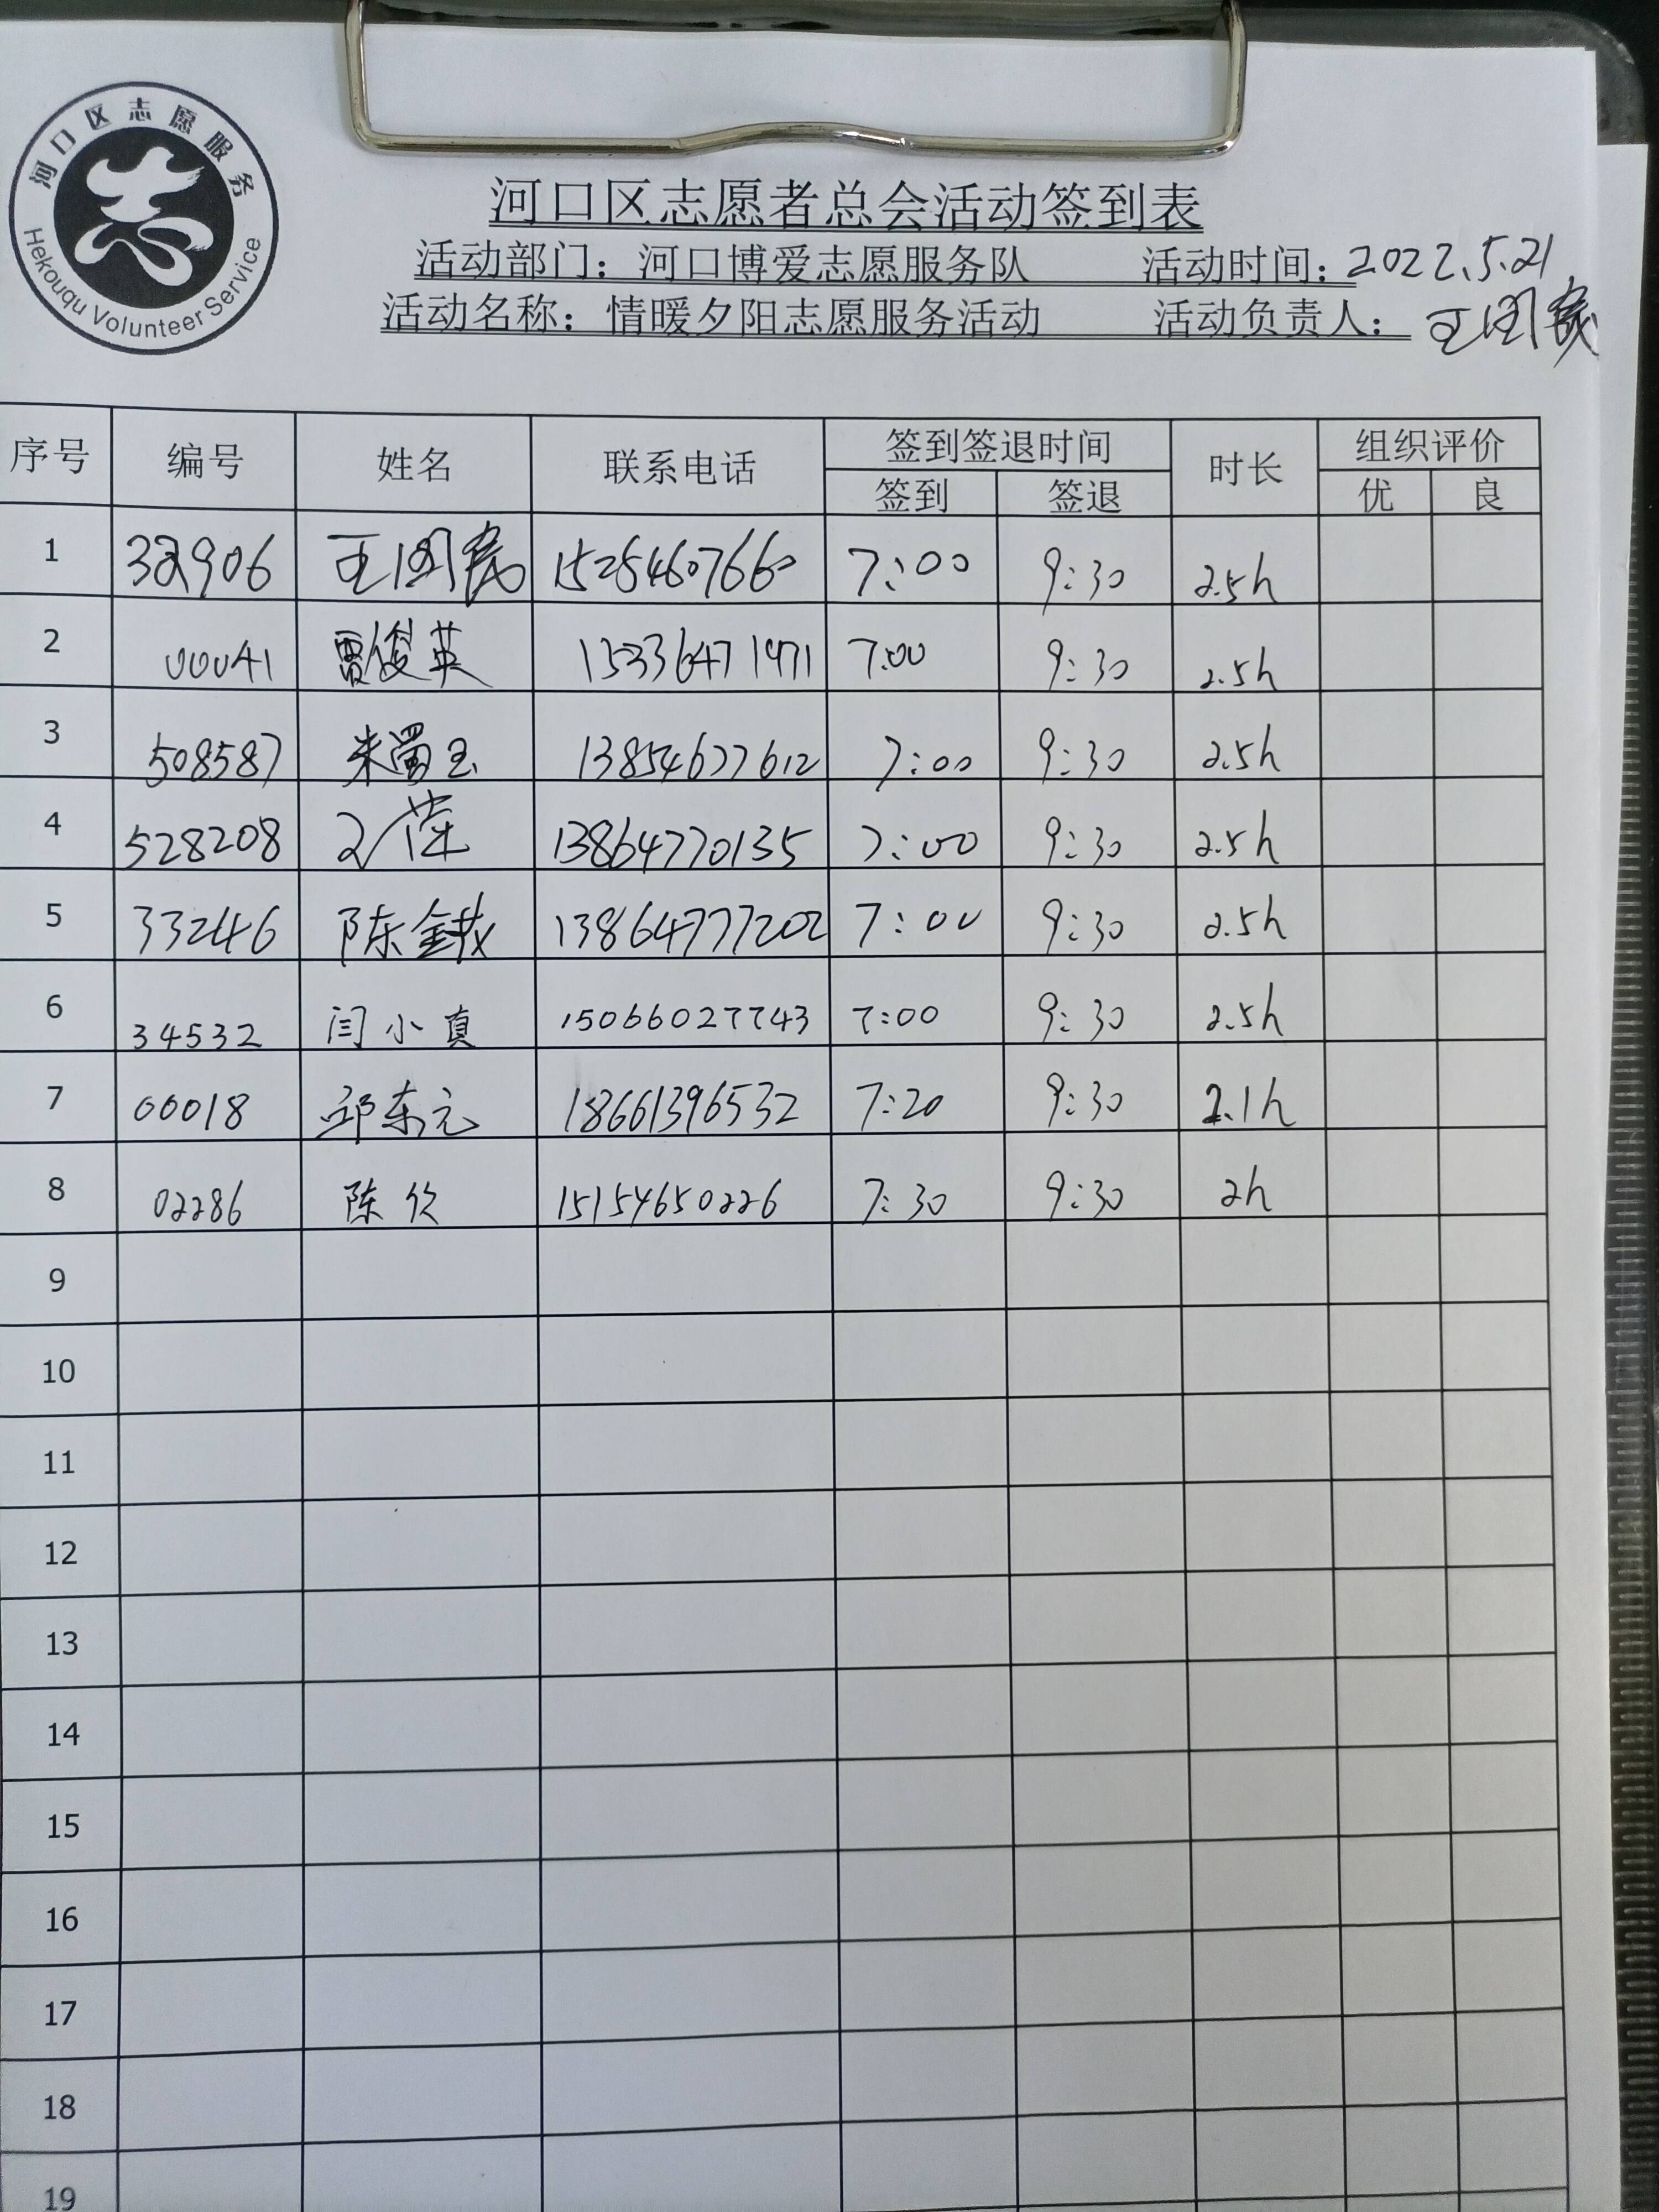 河口区志愿服务
Hekouqu Volunteer Service
河口区志愿者总会活动签到表
活动部门：河口博爱志愿服务队 活动时间：2022.5.21
活动名称：情暖夕阳志愿服务活动 活动负责人：王国家
序号 编号 姓名 联系电话 签到签退时间 时长 组织评价
签到 签退 优 良
1 32906 王国 15254607660 7:00 9:30 2.5h
2 00041 贾俊英 15336471971 7:00 9:30 2.5h
3 508587 朱蜀玉 13854677612 7:00 9:30 2.5h
4 528208 萍 13864770135 7:00 9:30 2.5h
5 33246 陈金 13864777202 7:00 9:30 2.5h
6 34532 闫小真 15066027743 7:00 9:30 2.5h
7 00018 邱东元 18661396532 7:20 9:30 2.1h
8 02286 陈 15154650226 7:30 9:30 2h
9
10
11
12
13
14
15
16
17
18
19